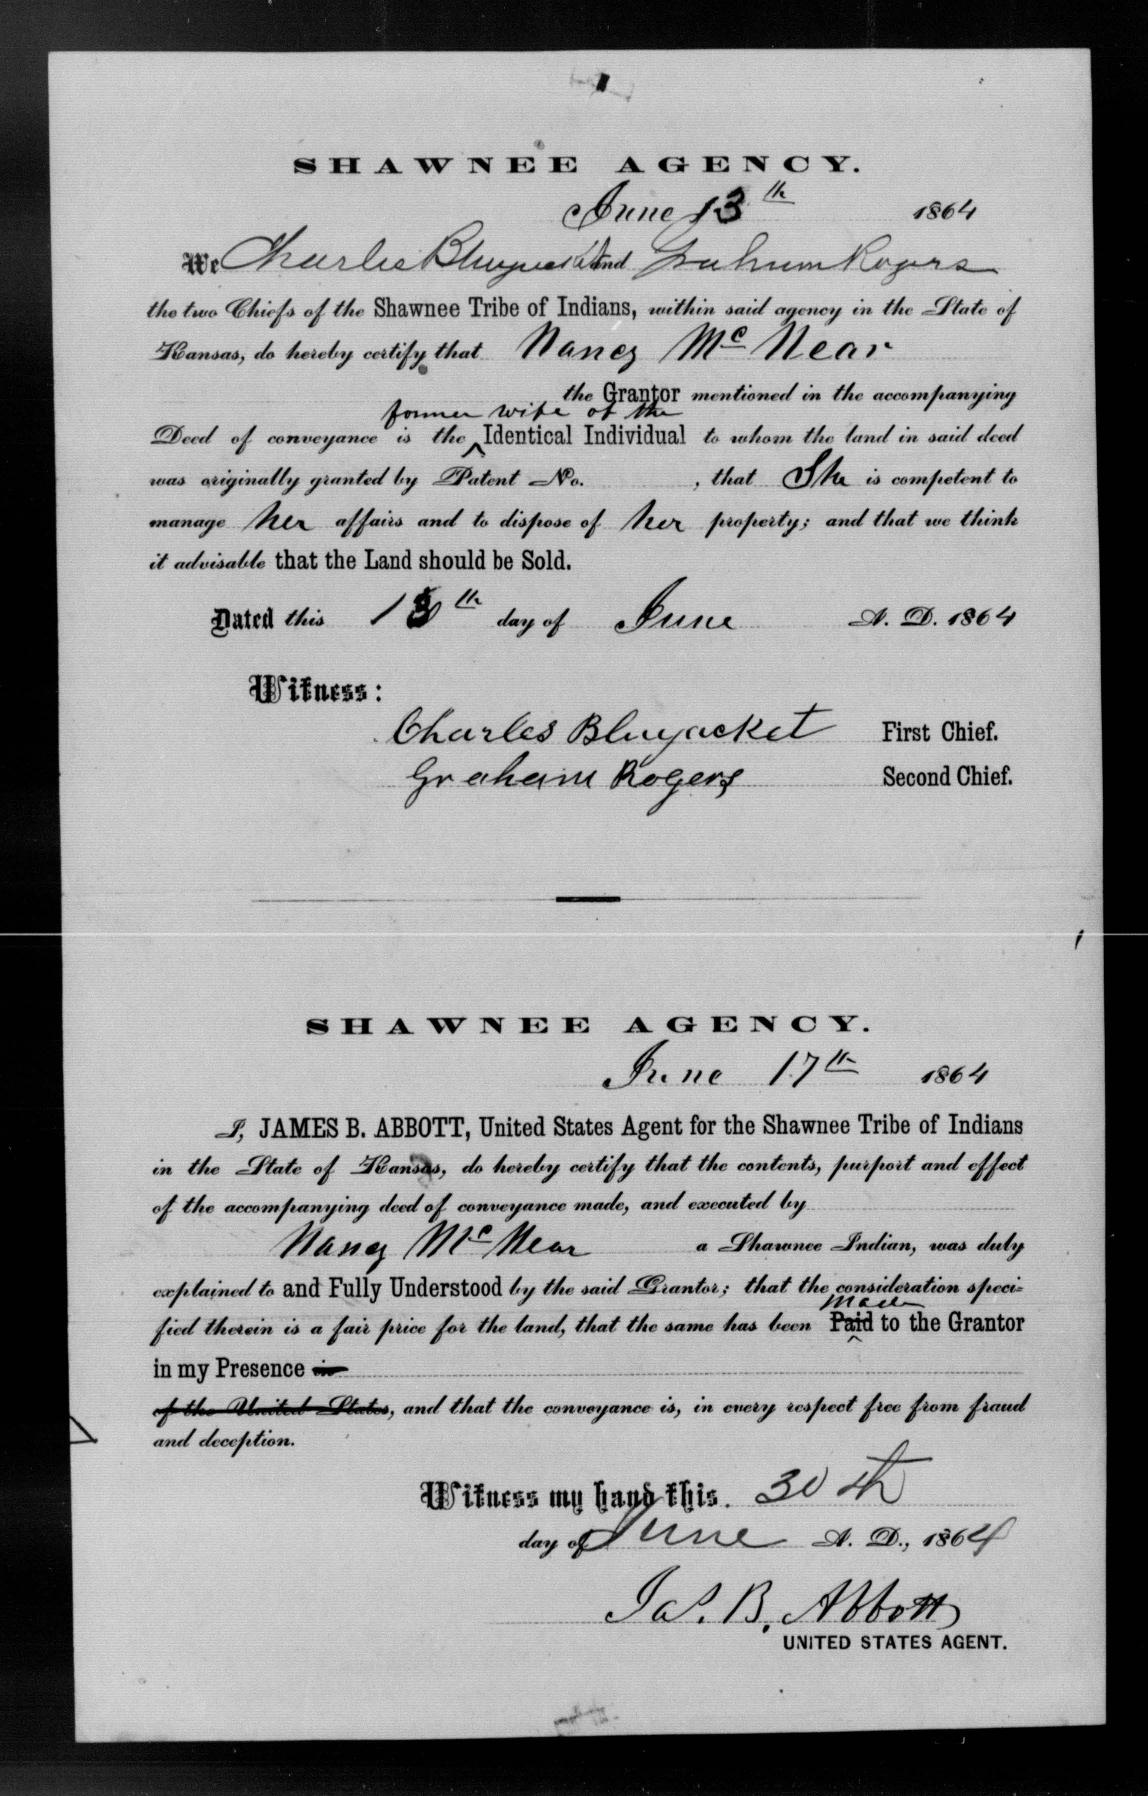 SHAWNEE AGENCY.
June 13th 1864
We Charles Bluejacket and Graham Rogers
the two Chiefs of the Shawnee Tribe of Indians, within said agency in the State of
Kansas, do hereby certify that Nancy McNear
the Grantor mentioned in the accompanying
former wife of the
Deed of conveyance is the ‸ Identical Individual to whom the land in said deed
was originally granted by Patent No. , that She is competent to
manage her affairs and to dispose of her property; and that we think
it advisable that the Land should be Sold.
Dated this 13th day of June A. D. 1864
Witness:
Charles Bluejacket First Chief.
Graham Rogers Second Chief.
SHAWNEE AGENCY.
June 17th 1864
I, JAMES B. ABBOTT, United States Agent for the Shawnee Tribe of Indians
in the State of Kansas, do hereby certify that the contents, purport and effect
of the accompanying deed of conveyance made, and executed by
Nancy McNear a Shawnee Indian, was duly
explained to and Fully Understood by the said Grantor; that the consideration speci=
made
fied therein is a fair price for the land, that the same has been Paid to the Grantor
in my Presence in
of the United States, and that the conveyance is, in every respect free from fraud
and deception.
Witness my hand this. 30th
day of June A. D., 1864
Jas. B. Abbott
UNITED STATES AGENT.